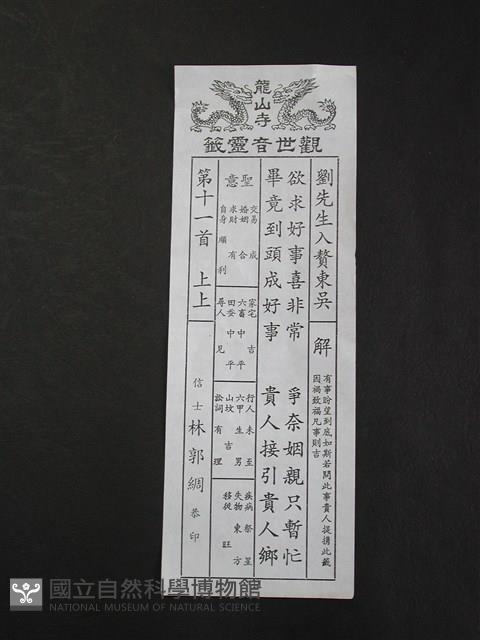 龍山寺
觀世音靈籤
劉先生入贅東吳
解
有事盼望到底如斯若問此事貴人提携此籤
因禍致福凡事則吉
欲求好事喜非常 爭奈姻親只暫忙
畢竟到頭成好事 貴人接引貴人鄉
聖意
交易 成
婚姻 合
求財 有
自身 順利
家宅 吉
六畜 中平
田蚕 中平
尋人 見
行人 未至
六甲 生男
山坟 吉
訟詞 有理
疾病 祭星
失物 東方
移徙 旺
第十一首 上上
信士 林郭綢 恭印
國立自然科學博物館
NATIONAL MUSEUM OF NATURAL SCIENCE